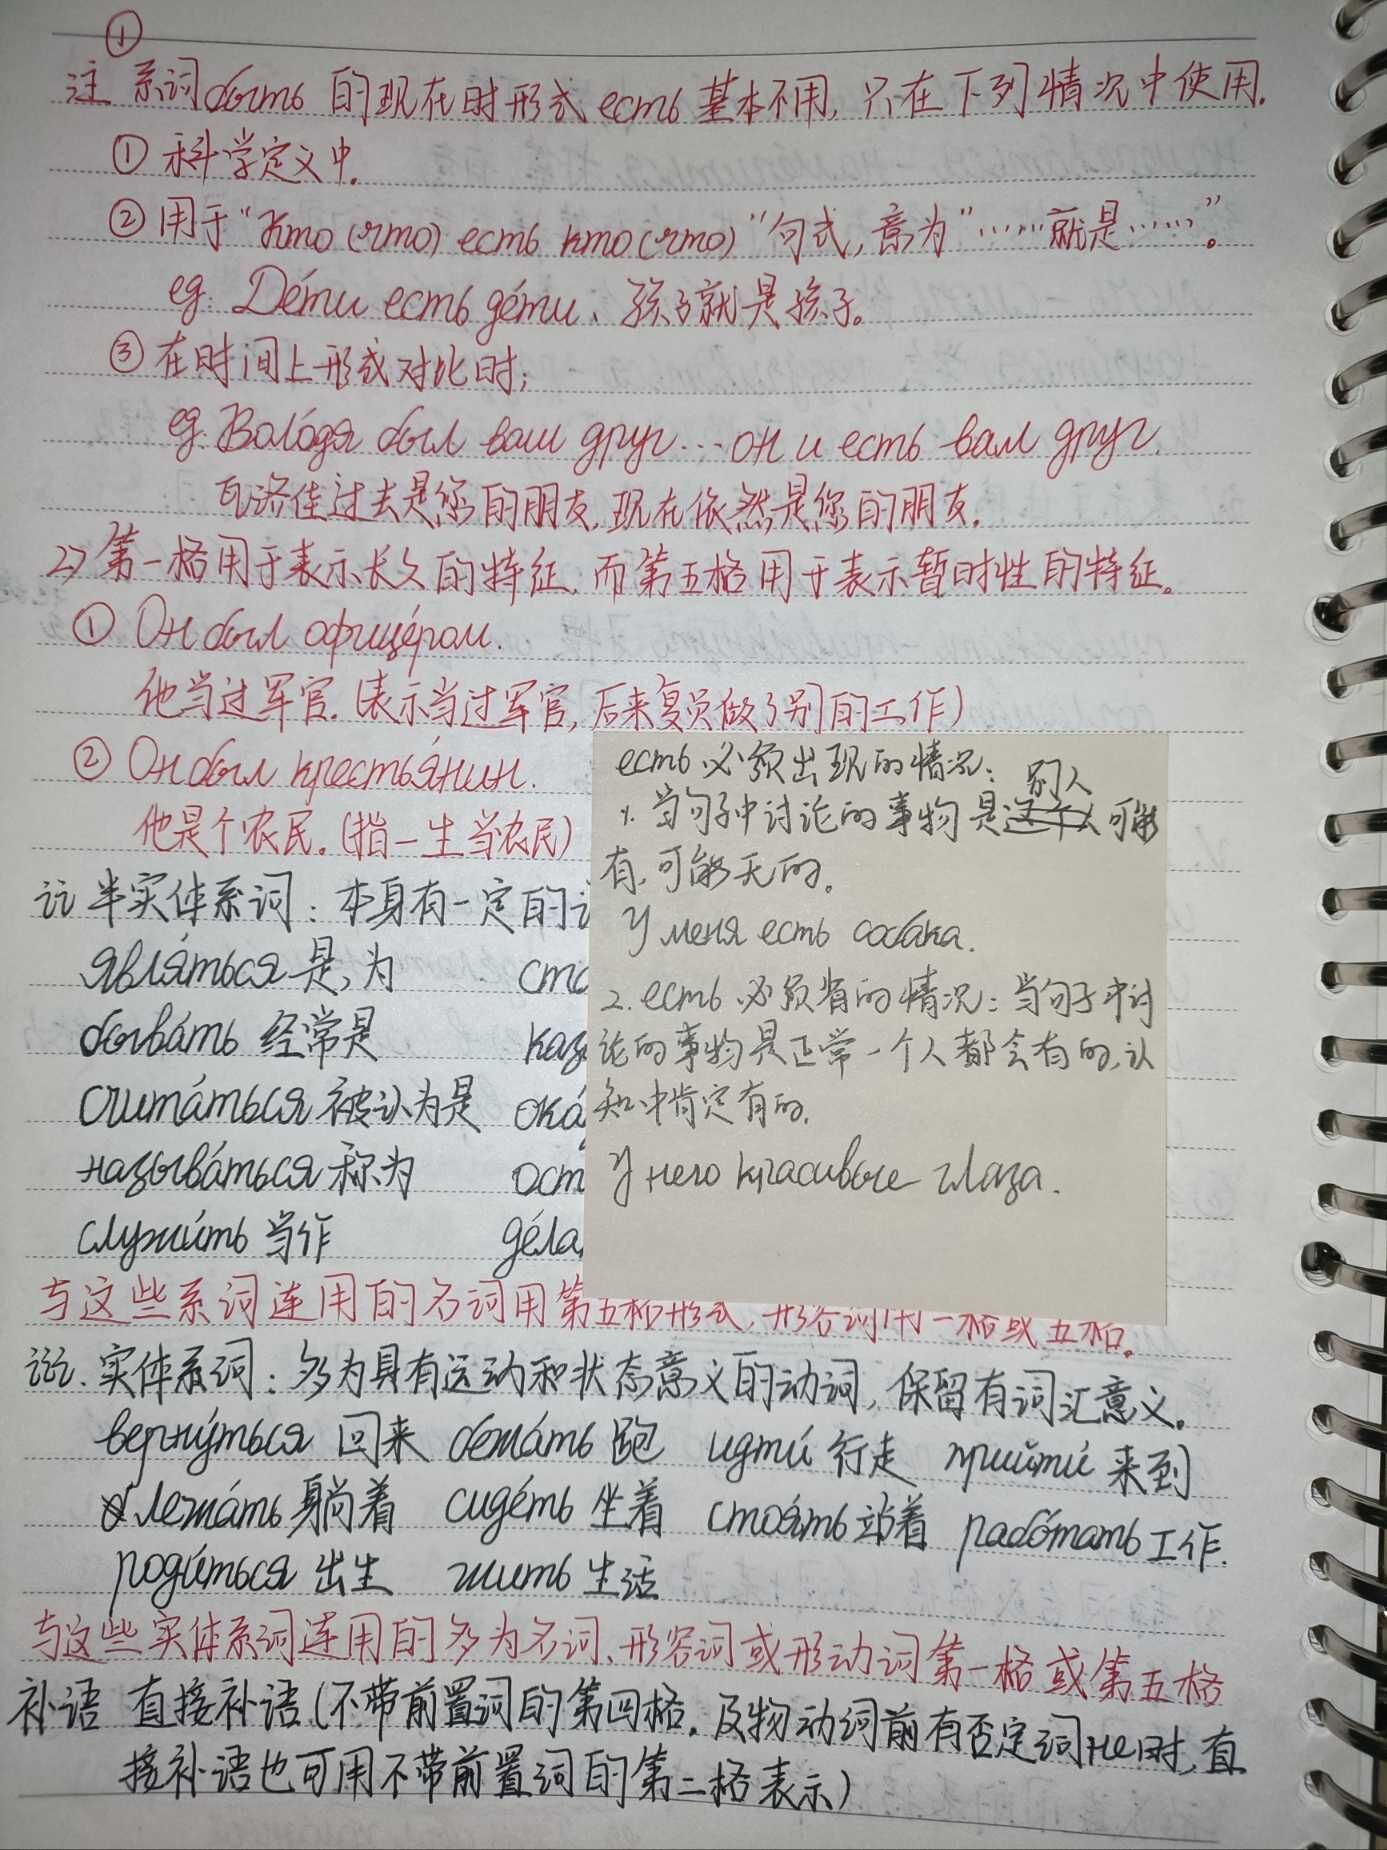 ①
注 系词быть 的现在时形式 есть 基本不用, 只在下列情况中使用.
① 科学定义中.
② 用于“Кто (что) есть кто (что)”句式, 意为“……就是……”。
eg: Де́ти есть де́ти. 孩子就是孩子。
③ 在时间上形成对比时;
eg. Воло́дя был ваш друг … он и есть вам друг.
瓦洛佳过去是您的朋友, 现在依然是您的朋友.
2) 第一格用于表示长久的特征, 而第五格用于表示暂时性的特征。
① Он был офице́ром.
他当过军官. (表示当过军官, 后来复员做了别的工作)
② Он был крестья́нин.
他是个农民. (指一生当农民)
ii 半实体系词: 本身有一定的
явля́ться 是, 为 ста
быва́ть 经常是 каз
счита́ться 被认为是 ока́
называ́ться 称为 ост
служи́ть 当作 де́ла
есть 必须出现的情况:
别人
1. 当句子中讨论的事物是可能
有, 可能无的.
У меня есть собака.
2. есть 必须省的情况: 当句子中讨
论的事物是正常一个人都会有的, 认
知中肯定有的.
У него красивые глаза.
与这些系词连用的名词用第五格形式, 形容词用一格或五格。
iii. 实体系词: 多为具有运动和状态意义的动词, 保留有词汇意义.
верну́ться 回来 бежа́ть 跑 идти́ 行走 прийти́ 来到
лежа́ть 躺着 сиде́ть 坐着 стоя́ть 站着 рабо́тать 工作.
роди́ться 出生 жить 生活
与这些实体系词连用的多为名词、形容词或形动词第一格或第五格
补语 直接补语 (不带前置词的第四格. 及物动词前有否定词 не 时, 直
接补语也可用不带前置词的第二格表示)